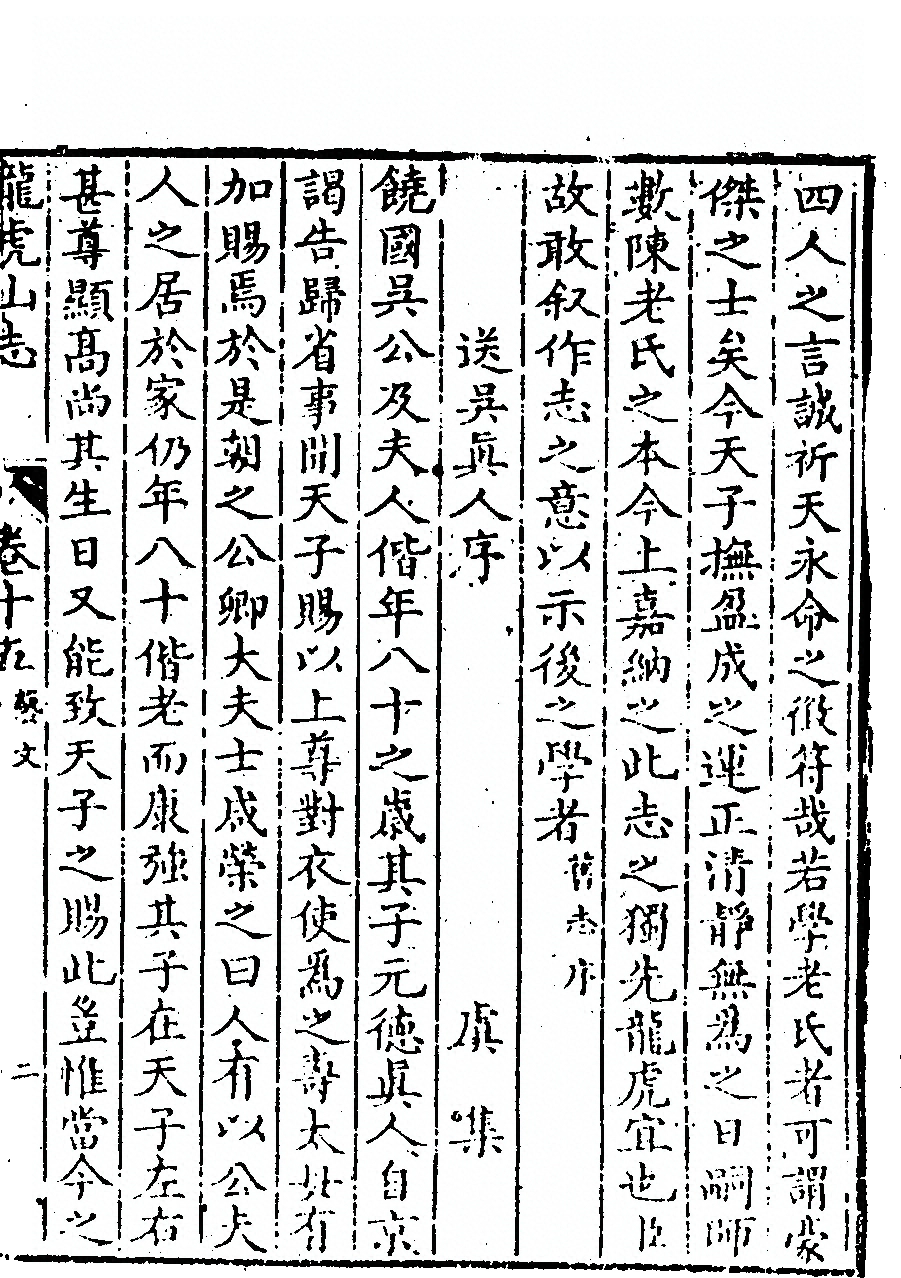 四人之言誠祈天永命之徵符哉若學老氏者可謂豪
傑之士矣今天子撫盈成之運正清靜無爲之日嗣師
數陳老氏之本今上嘉納之此志之獨先龍虎宜也臣
故敢叙作志之意以示後之學者舊志序
送吳眞人序 虞集
饒國吳公及夫人偕年八十之歲其子元德眞人自京
謁告歸省事聞天子賜以上尊對衣使爲之壽太母有
加賜焉於是朝之公卿大夫士咸榮之曰人有以公夫
人之居於家仍年八十偕老而康強其子在天子左右
甚尊顯高尚其生日又能致天子之賜此豈惟當今之
龍虎山志 卷十五 藝文 二